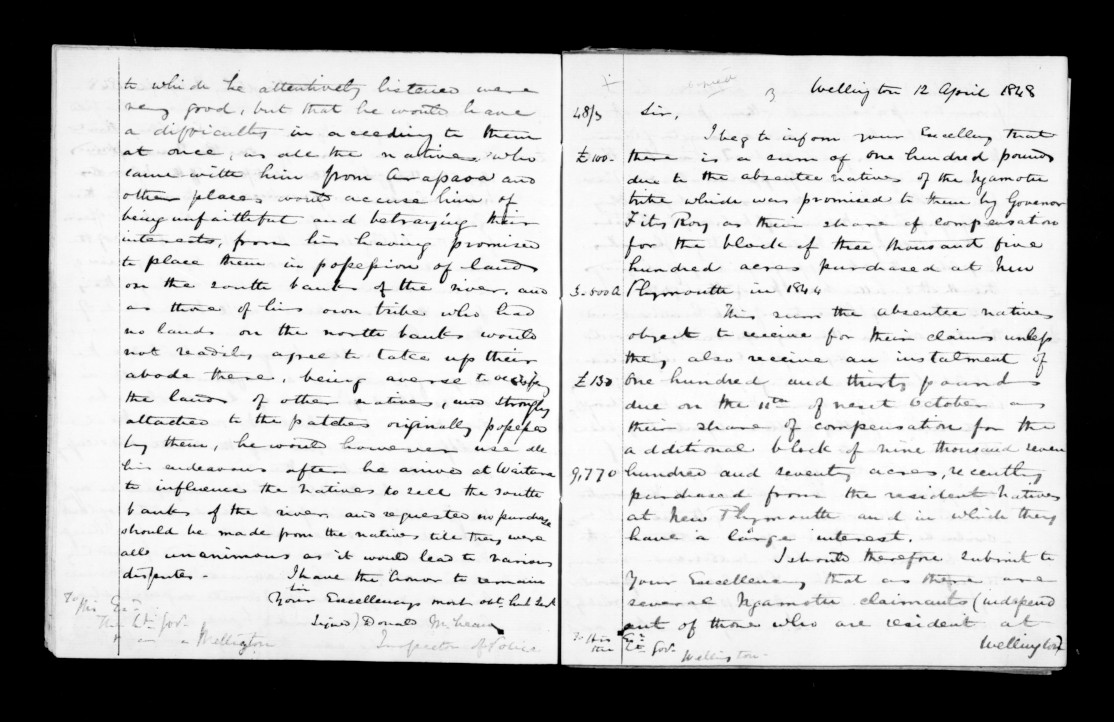 to which he attentively listened were
very good, but that he would have
a difficulty in acceeding to them
at once, as all the natives who
came with him from Arapaoa and
other places would accuse him of
being unfaithful and betraying their
interests, from his having promised
to place them in possession of land
on the south banks of the river, and
as those of his own tribe who had
no lands on the north banks would
not readily agree to take up their
abode there, being averse to occupy
the lands of other natives, and strongly
attached to the patches originally possessed
by them, he would however use all
his endeavours after he arrive at Waitara
to influence the natives to sell the south
banks of the river and requested no purchase
should be made from the natives till they were
all unanimous as it would lead to various
disputes -
I have the honor to remain
Sir
Your Excellencys most obt. hul Svt
Signed) Donald McLean
Inspector of Police
To His Ex.
The Lt. Govr.
Wellington
3
Wellington 12 April 1848
48/3
Sir,
I beg to inform your Excellency that
£100- there is a sum of one hundred pounds
due to the absentee natives of the Ngamotu
tribe which was promised to them by Governor
Fitz Roy as their share of compensation
for the block of three thousand five
hundred acres purchased at New
3-500a Plymouth in 1844
This sum the absentee natives
object to receive for their claims unless
they also receive an instalment of
£130 One hundred and thirty pounds
due on the 11th of next October as
their share of compensation for the
additional block of nine thousand seven
9,770 hundred and seventy acres, recently
purchased from the resident Natives
at New Plymouth and in which they
have a large interest.
I should therefore submit to
Your Excellency that as there are
several Ngamotu claimants (independ
ant of those who are resident at
Wellington
To His Ex.
the Lt. Govr.
Wellington -